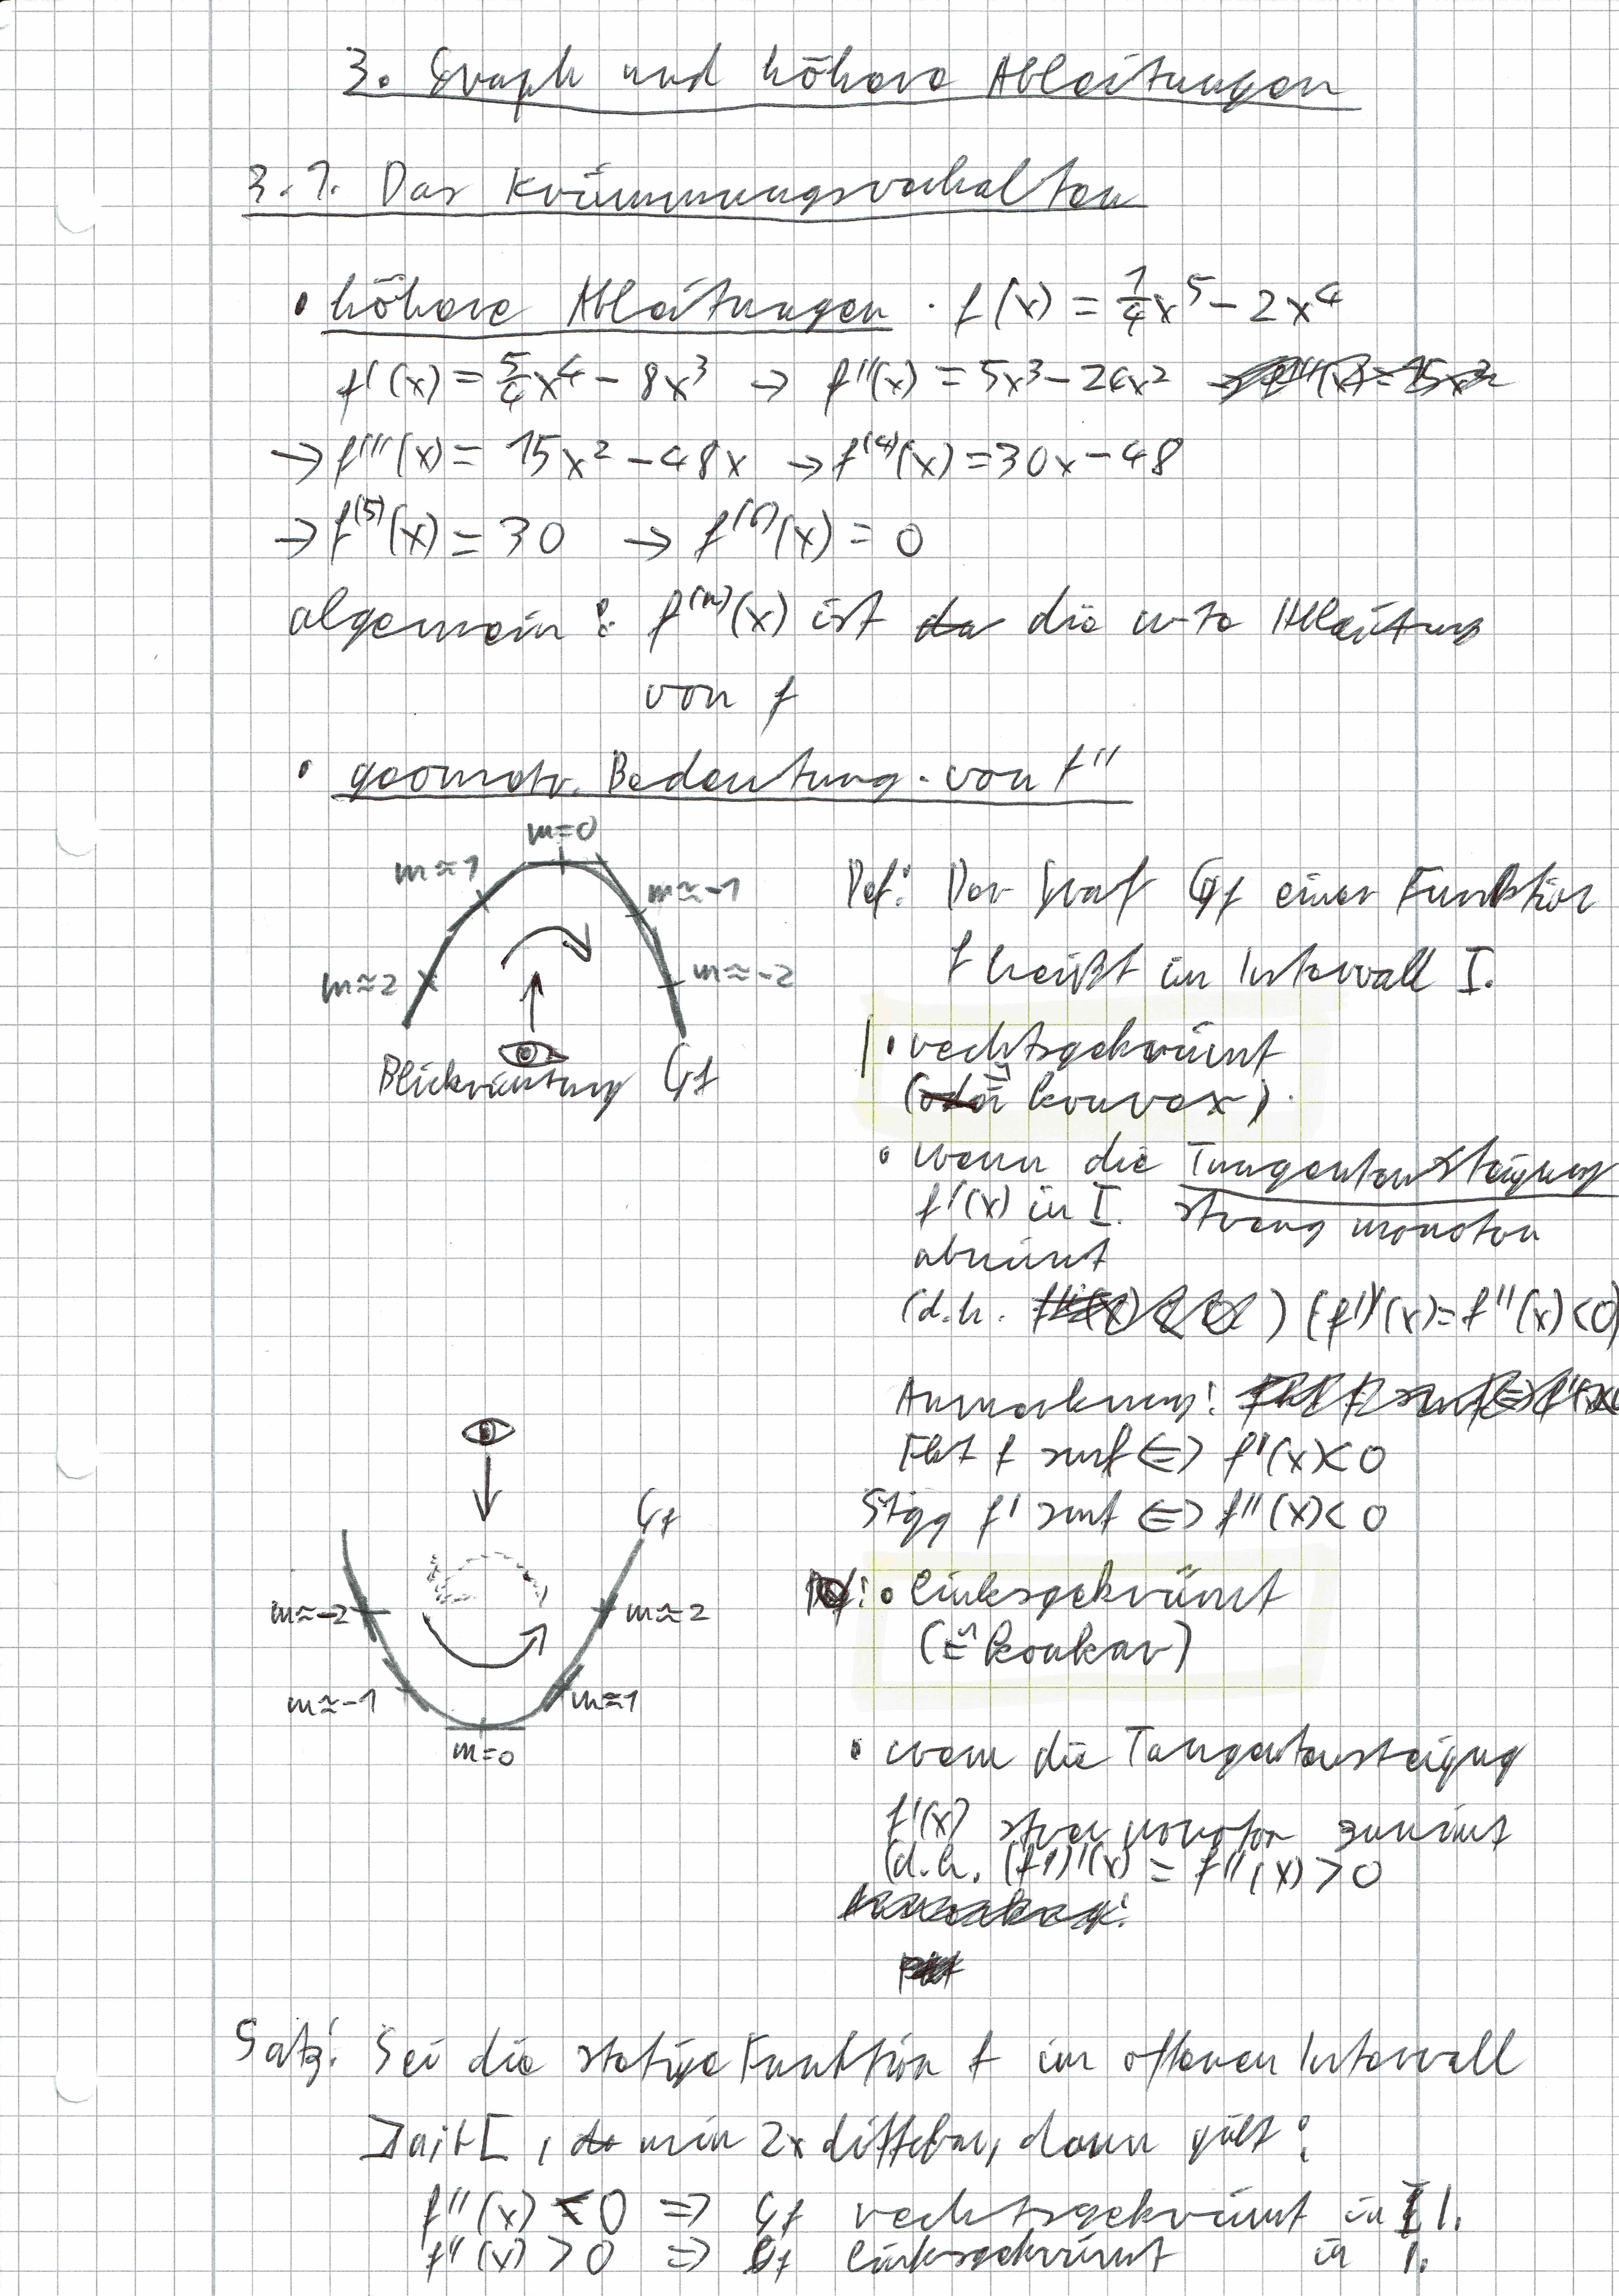 3. Graph und höhere Ableitungen
3.1. Das Krümmungsverhalten
• höhere Ableitungen · f(x) = 1/4 x⁵ − 2x⁴
f'(x) = 5/4 x⁴ − 8x³ → f''(x) = 5x³ − 24x²
→ f'''(x) = 15x² − 48x → f⁽⁴⁾(x) = 30x − 48
→ f⁽⁵⁾(x) = 30 → f⁽⁶⁾(x) = 0
algemein: f⁽ⁿ⁾(x) ist die n-te Ableitung
von f
• geometr. Bedeutung von f''
m=0
m≈1
m≈-1
m≈2
m≈-2
Blickrichtung Gf
Def: Der Graf Gf einer Funktion
f heißt im Intervall I.
• rechtsgekrümt
(≙ konvex)
• wenn die Tangentensteigung
f'(x) in I. streng monoton
abnimt
(d.h. ) (f')'(x) = f''(x) < 0)
Anmerkung:
Fkt f smf ⇔ f'(x) < 0
Stgg f' smf ⇔ f''(x) < 0
Gf
m≈-2
m≈2
m≈-1
m≈1
m=0
• linksgekrümt
(≙ konkav)
• wenn die Tangentensteigug
f'(x) monoton zunimt
(d.h. (f')'(x) = f''(x) > 0
Satz: Sei die stetige Funktion f im offenen Intervall
]a;b[, min 2x diffbar, dann gilt:
f''(x) < 0 ⇒ Gf rechtsgekrümt in I.
f''(x) > 0 ⇒ Gf linksgekrümt in I.